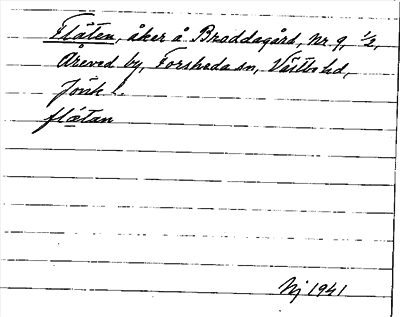 Flåten, åker å Braddagård, Nr 9, 1/2,
Åreved by, Forsheda sn, Västbo hd,
Jönk l.
flåtan
Nj 1941